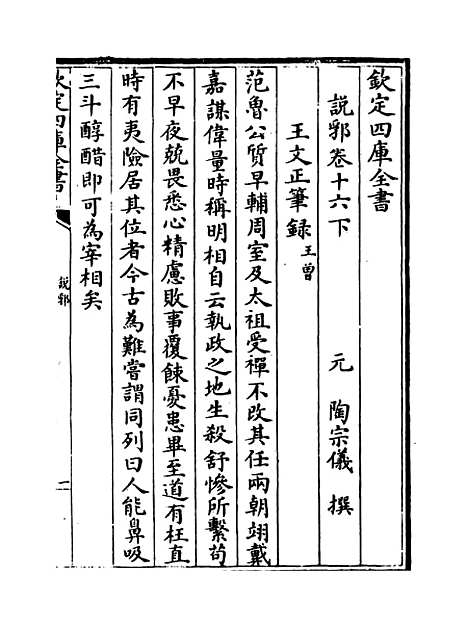 欽定四庫全書
説郛卷十六下
元 陶宗儀 撰
王文正筆録王曾
范魯公質早輔周室及太祖受禪不改其任兩朝翊戴
嘉謀偉量時稱明相自云執政之地生殺舒慘所繫苟
不早夜兢畏悉心精慮敗事覆餗憂患畢至道有枉直
時有夷險居其位者今古為難嘗謂同列曰人能鼻吸
三斗醇醋即可為宰相矣
欽定四庫全書
説郛
一